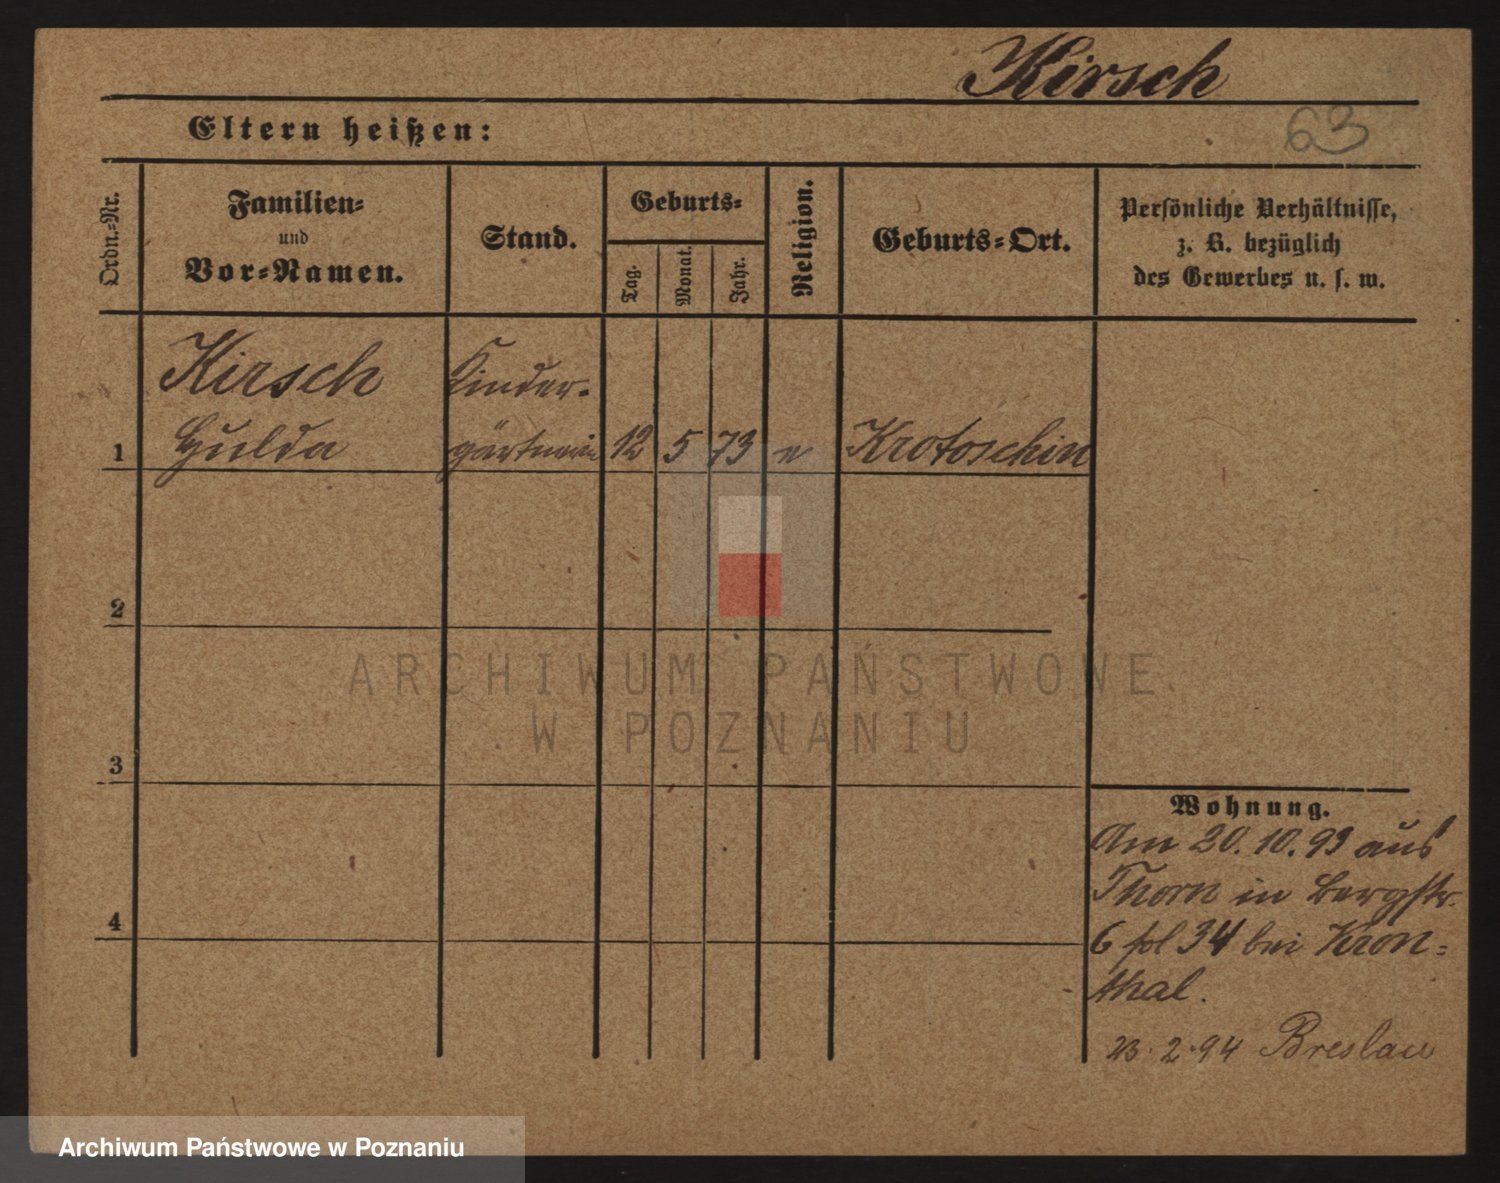 Kirsch
Eltern heißen:
63
Ordn.-Nr.
Familien-
und
Vor-Namen.
Stand.
Geburts-
Tag.
Monat.
Jahr.
Religion.
Geburts-Ort.
Persönliche Verhältnisse,
z. B. bezüglich
des Gewerbes u. s. w.
Kirsch
Kinder-
1 Hulda gärtnerin 12 5 73 Krotoschin
2
ARCHIWUM PAŃSTWOWE
W POZNANIU
3
Wohnung.
Am 20.10.93 aus
Thorn in Bergstr.
4
6 pol 34 bei Kron-
thal.
23.2.94 Breslau
Archiwum Państwowe w Poznaniu